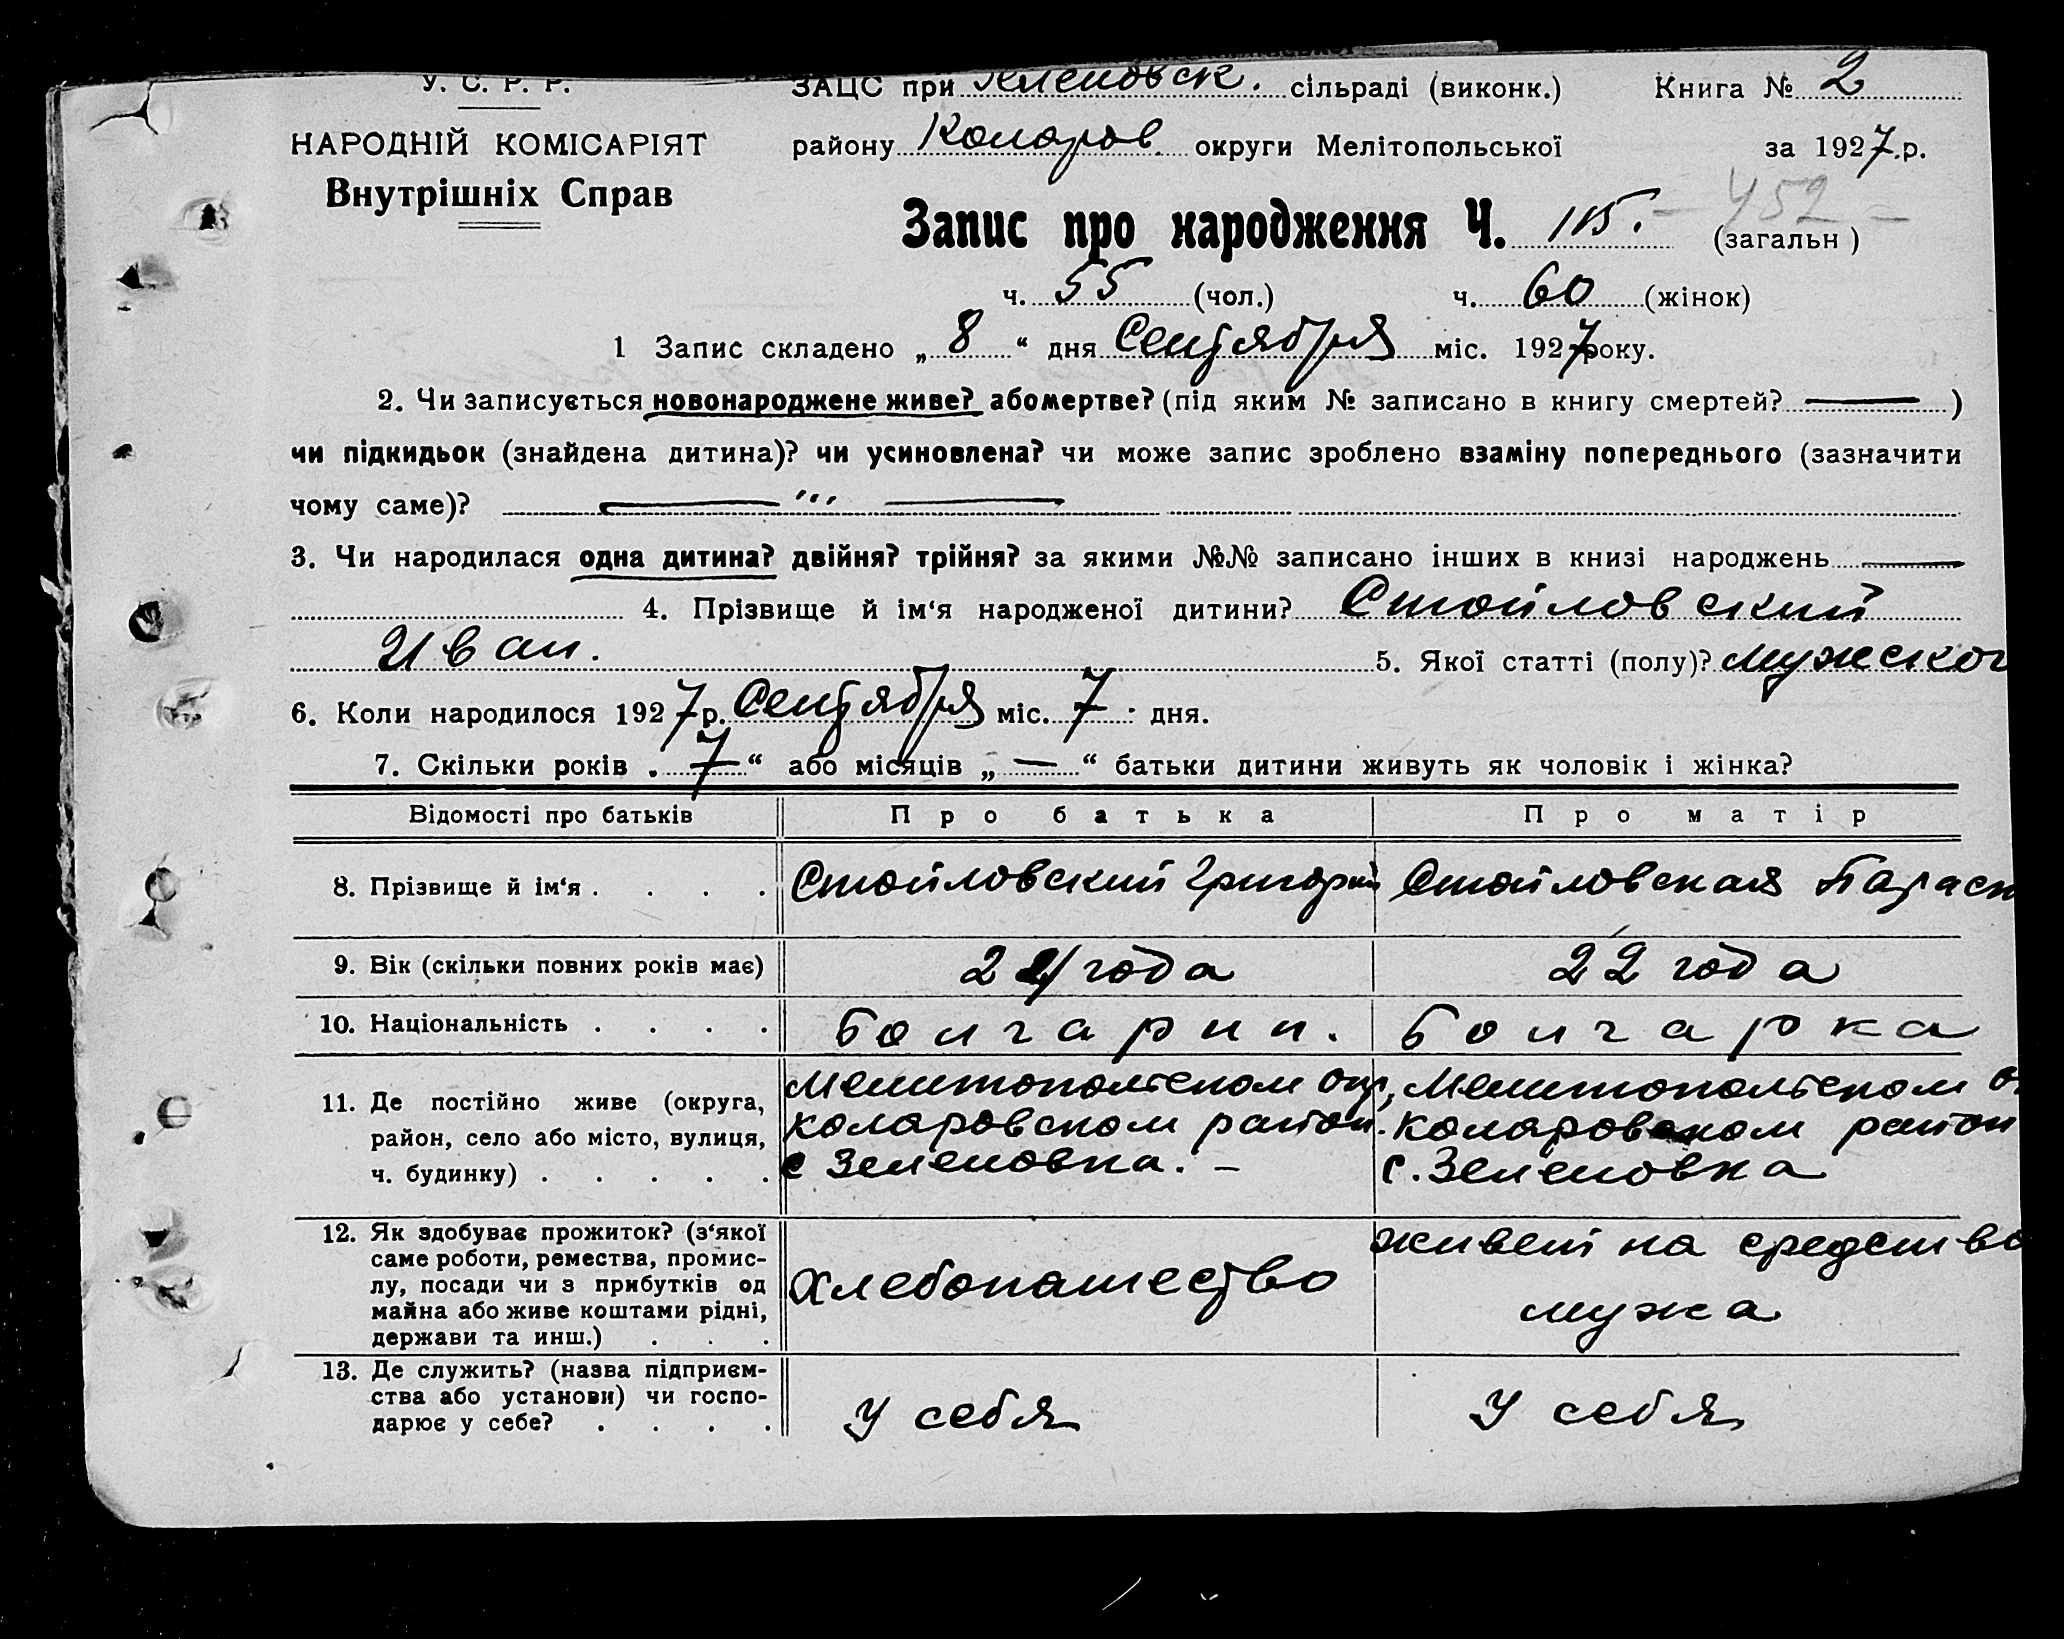 У. С. Р. Р.
НАРОДНІЙ КОМІСАРІЯТ
Внутрішніх Справ
ЗАЦС при Зеленовск. сільраді (виконк.) Книга № 2
району Коларов. округи Мелітопольської за 1927.р.
Запис про народження Ч. 115. - 452 -
(загальн )
ч. 55 (чол.) ч. 60 (жінок)
1 Запис складено „ 8 “ дня Сентября міс. 1927 року.
2. Чи записується новонароджене живе? або мертве? (під яким № записано в книгу смертей? — )
чи підкидьок (знайдена дитина)? чи усиновлена? чи може запис зроблено взаміну попереднього (зазначити
чому саме)? — ''' —
3. Чи народилася одна дитина? двійня? трійня? за якими №№ записано інших в книзі народжень —
4. Прізвище й ім‘я народженої дитини? Стойловский
Иван. 5. Якої статті (полу)? мужског
6. Коли народилося 1927 р. Сентября міс. 7 дня.
7. Скільки років „ 7 “ або місяців „ — “ батьки дитини живуть як чоловік і жінка?
Відомості про батьків Про батька Про матір
8. Прізвище й ім‘я . . . . Стойловский Григорий Стойловская Параск
9. Вік (скільки повних років має) года 22 года
10. Національність . . . . Болгарин. Болгарка
11. Де постійно живе (округа,
район, село або місто, вулиця,
ч. будинку) . . . . .
Мелитопольском окр,
Коларовском район.
с Зеленовка. –
Мелитопольском о
Коларовском район
с. Зеленовка
12. Як здобуває прожиток? (з‘якої
саме роботи, ремества, промис-
лу, посади чи з прибутків од
майна або живе коштами рідні,
держави та инш.) . . .
хлебопашество
живет на средство
мужа
13. Де служить? (назва підприєм-
ства або установи) чи госпо-
дарює у себе? . . . .
у себя
у себя